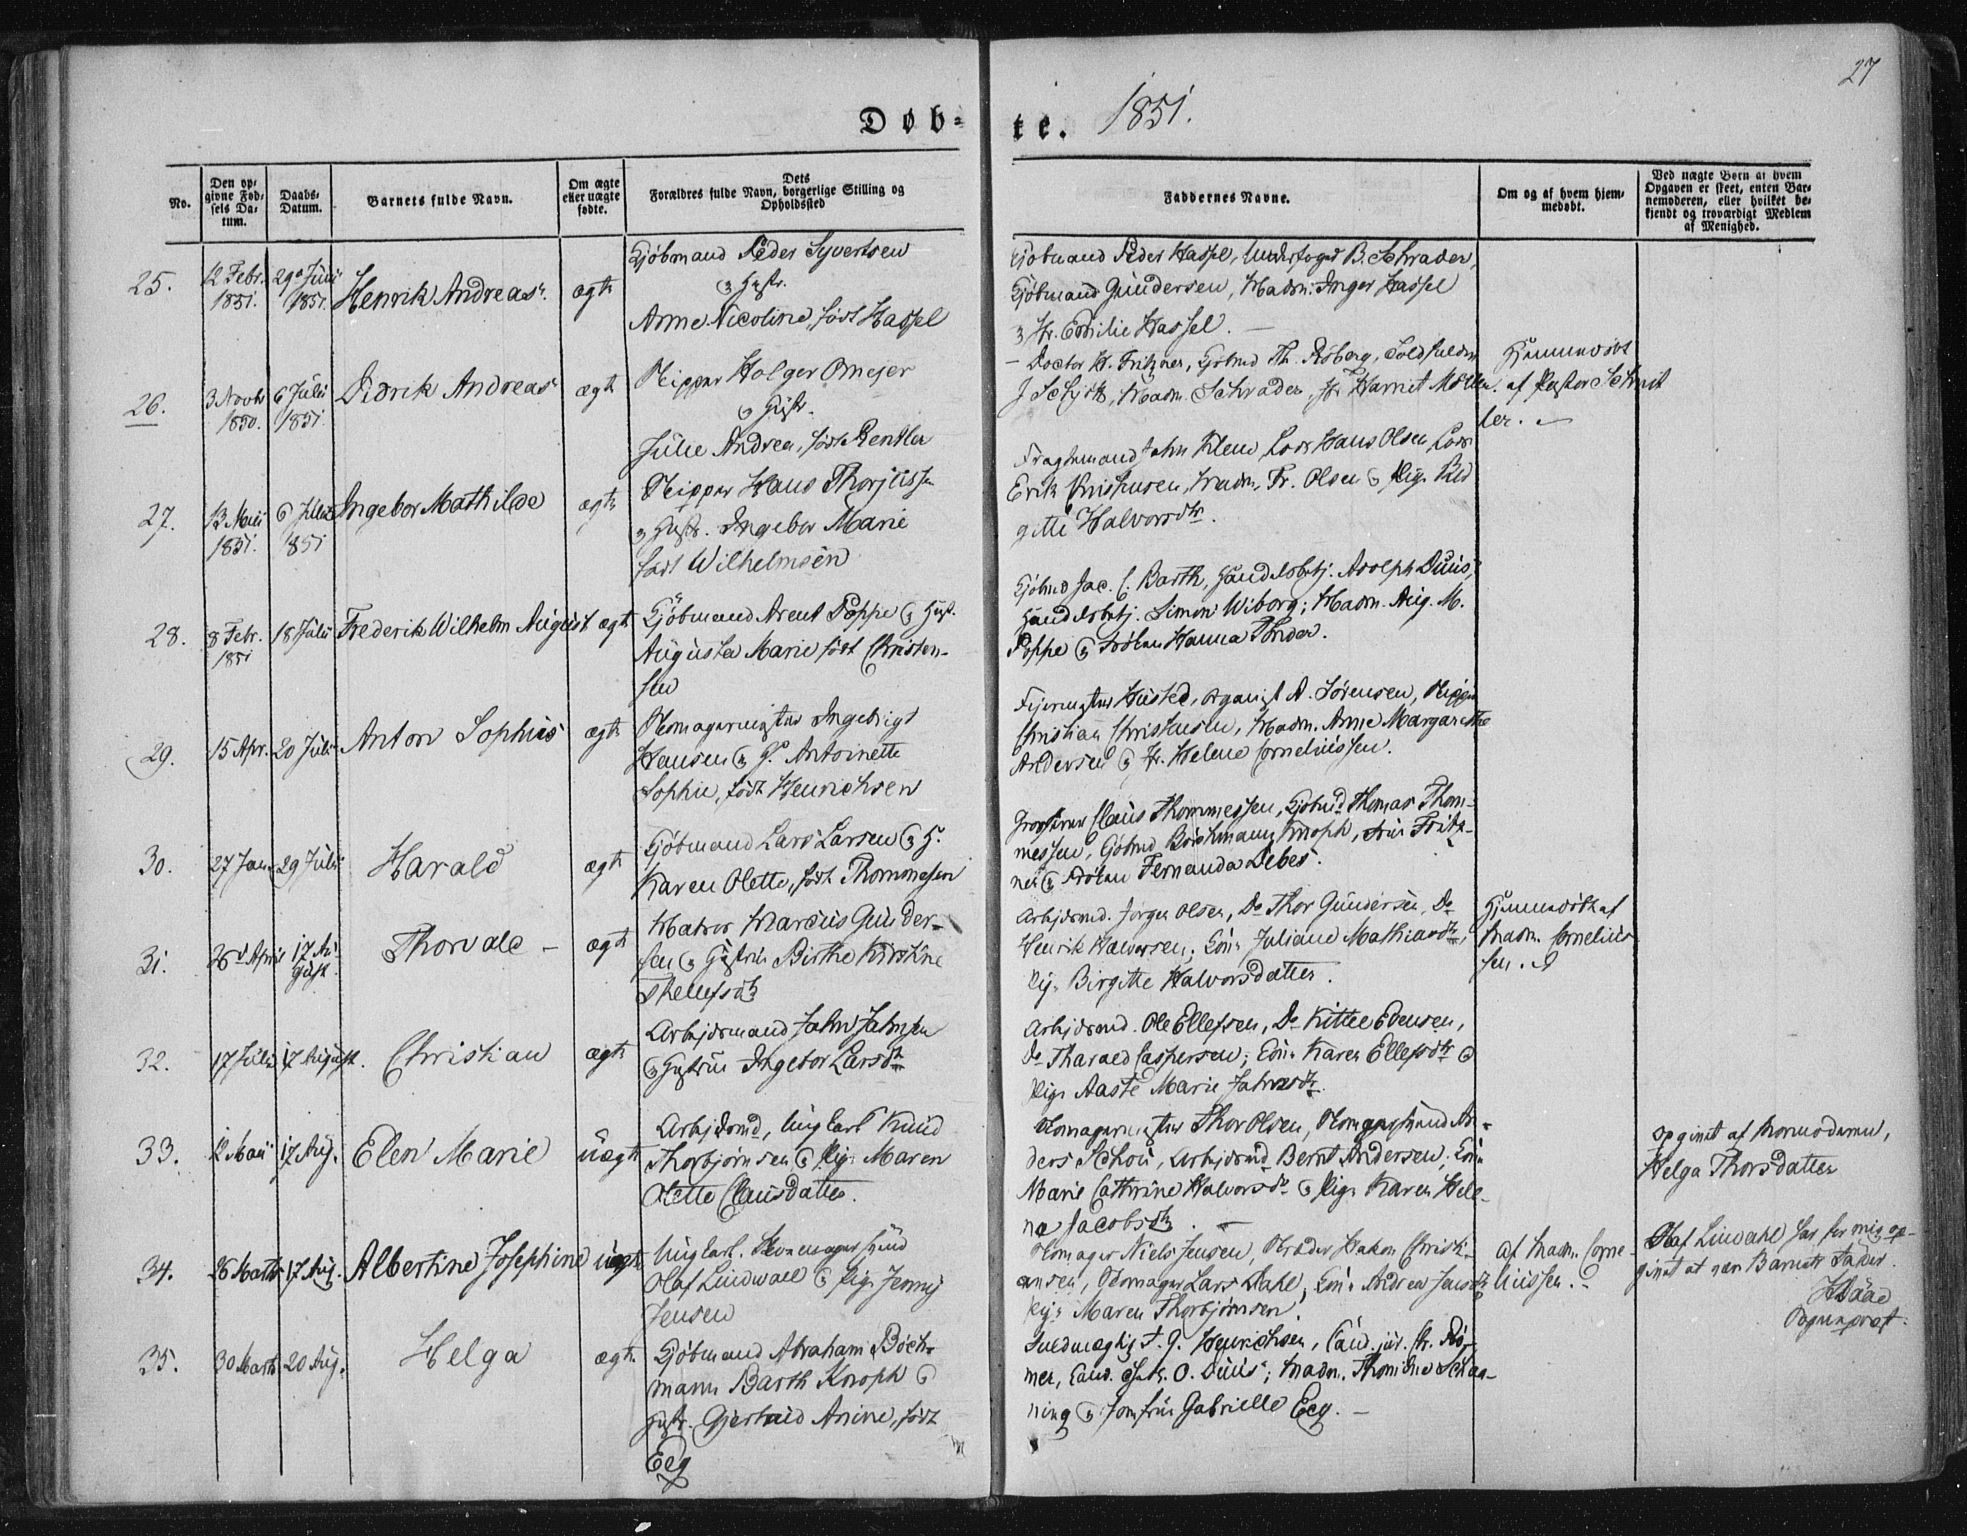 27
Døb-
te. 1851.
No.
Den op-
givne Fød-
sels Da-
tum.
Daabs-
Datum.
Barnets fulde Navn.
Om ægte
eller uægte
fødte.
Dets
Forældres fulde Navn, borgerlige Stilling og
Opholdssted
Faddernes Navne.
Om og af hvem hjem-
medøbt.
Ved uægte Børn af hvem
Opgaven er skeet, enten Bar-
nemoderen, eller hvilket be-
kjendt og troværdigt Medlem
af Menighed.
25.
12 Febr.
1851.
29 Juni
1851.
Henrik Andreas
ægte
Kjöbmand Peder Syvertsen
& Hustr.
Anne Nicoline, født Hassel
Kjöbmand Peder Hassel, Underfoged B. Schrader,
Kjöbmand Gundersen, Madm. Inger Hassel
& Fr. Emilie Hassel.
26.
3 Novbr
1850.
6 Juli
1851.
Didrik Andreas
ægte
Skipper Holger Omejer
& Hustr.
Julie Andrea, født Rentler
Doctor H. Fritzner, Kjöbmd Th. Röberg,
J Schjøtt, Madm. Schrader, Fr. Harriet Möller.
Hjemmedöbt
af Pastor Schmit
ler.
27.
13 Mai
1851.
6 Juli
1851
Ingebor Mathilde
ægte
Skipper Hans
& Hustr. Ingebor Marie
født Wilhelmsen
Fragtemand Jahn Klem, Lods Hans Olsen, Lods
Erik Christensen, Madm. Fr. Olsen & Pige Bir
gitte Halvorsdtr.
28.
8 Febr.
1851
18 Juli
Frederik Wilhelm August
ægte
Kjöbmand Arent Poppe & Hust.
Augusta Marie født Christen-
sen
Kjöbmd Jac. C. Barth, Handelsbetj. Adolph Duus,
Handelsbetj. Simon Wiborg; Madm. Aug. M.
Poppe & Fröken Hanna
29.
15 Apr.
20 Juli
Anton Sophus
ægte
Skomagermester Ingebrigt
Hansen & H. Antoinette
Sophie, født Henrichsen
Husted, Organist A. Sörensen, Skipper
Christian Christensen, Madm. Anne Margarethe
Andersen & Fr. Helene Corneliussen.
30.
27 Jan
29 Juli
Harald
ægte
Kjöbmand Lars Larsen & H.
Karen Olette, født Thommesen
Claus Thommessen, Kjöbmd Thomas Thom-
messen, Kjöbmd Böckmann Knoph, Fru Fritz-
ner & Fröken Fernanda Debes.
31.
26 April
17 Au-
gust.
Thorvald
ægte
Matros Marcus Gunder-
sen & Hustru Birthe Kirstine
Thellefsdtr
Arbjdsmd. Jørgen Olsen, Do Thor Gundersen, Do
Henrik Halvorsen; Kone Juliane Mathiasdtr,
Pige Birgitte Halvorsdatter.
Hjemmedöbt af
Madm. Cornelius-
sen.
32.
17 Juli
17 August.
Christian
ægte
Arbejdsmand Jahn Jahnsen
& Hustrue Ingebor Larsdtr
Arbjdsmd. Ole Ellefsen, Do Kittel Edensen,
Do Tharald Caspersen; Kone Karen Ellefsdtr &
Pige Aaste Marie Jahnsdtr.
33.
12 Mai
17 Aug.
Elen Marie
uægte
Arbjdsmd, Ungkarl Knud
Thorbjørnsen & Pige Maren
Olette Clausdatter.
Skomagermester Thor Olsen, Skomagersvend An-
ders Schou, Arbjdsmd Bernt Andersen, Kone
Marie Cathrine Halvorsdtr & Pige Karen Hele-
ne Jacobsdtr.
opgivet af Mormoderen,
Helga Thorsdatter
34.
26 Marts
17 Aug.
Albertine Josephine
uægte
Ungkarl. Skomagersvend
Olaf Lindwall & Pige Jenny
Jensen
Skomager Niels Jensen, Skræder Hakon Christi-
ansen, Skomager Lars Dahl, Kone Andrea Jensdtr
Pige Maren Thorbjørnsen
af Madm. Corne-
liussen.
Olaf Lindahl har for mig op-
givet at være Barnets Fader.
Sogneprest.
35.
30 Marts
20 Aug.
Helga
ægte.
Kjöbmand Abraham Böck-
mann Barth Knoph &
Hustr. Gjertrud Anine, født
Eeg
Fuldmægtig F. J. Henrichsen, Cand. jur. Chr. Rö-
mer, Cand. O. Duus; Madm. Thomine Schaa-
ning & Jomfrue Gabrielle Eeg.